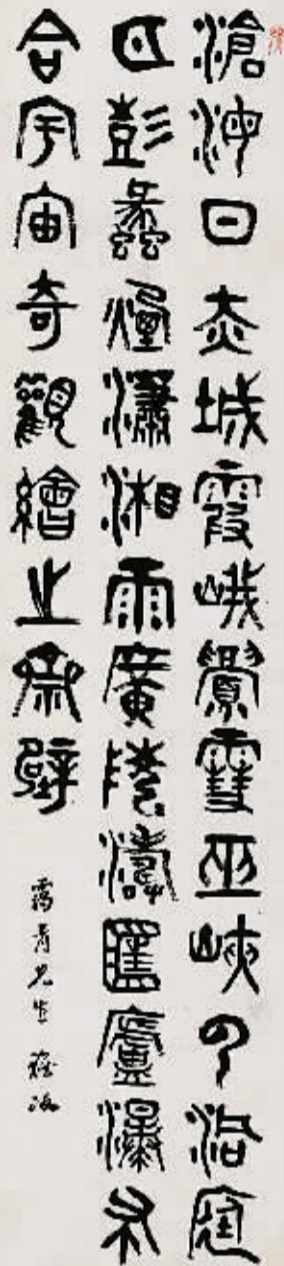 滄海日赤城霞峨眉雪巫峽云洞庭
月彭蠡煙瀟湘雨廣陵濤匡廬瀑布
合宇宙奇觀繪之齋壁
青先生